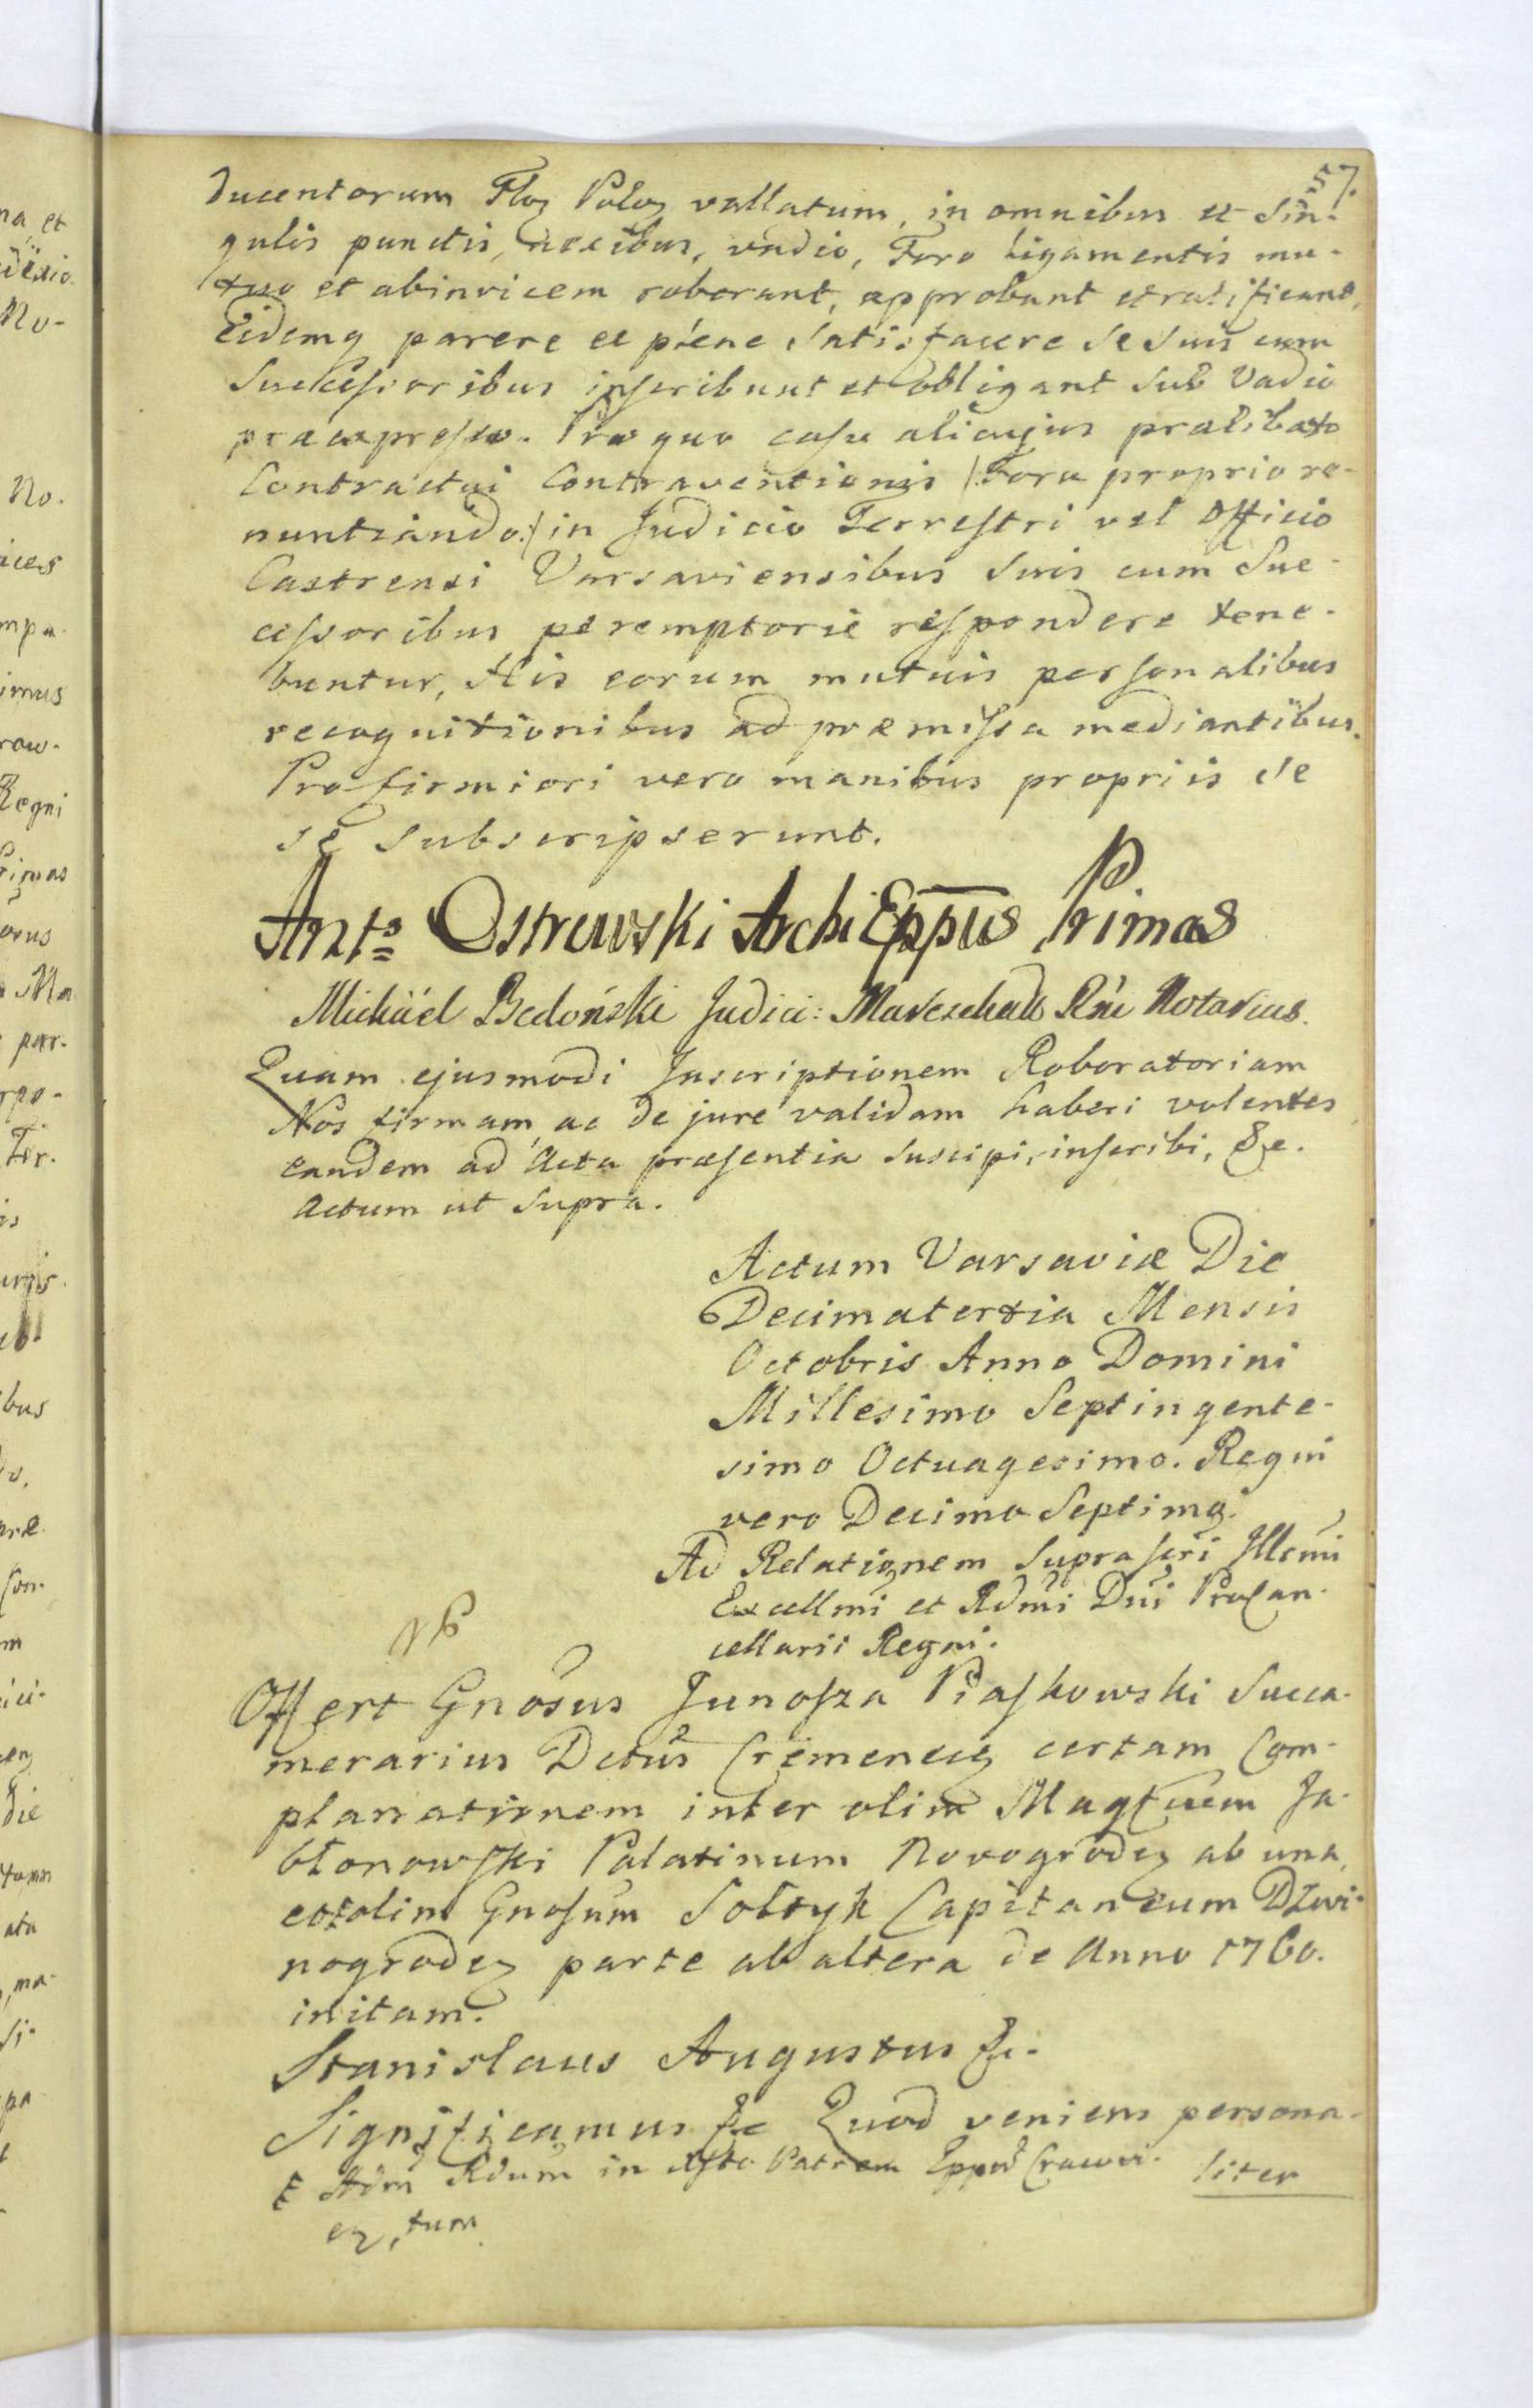 ducentorum Floŋ Poloŋ vallatum, in omnibus et Sin-
gulis punctis, nexibus, vadio, Foro Ligamentis mu-
tuo et abinvicem roborant, approbant et ratificant,
Eidemq parere ac plene Satisfacere se suis cum
Successoribus inscribunt et obligant sub Vadio
praeexpresso. Pro quo casu alicujus praelibato
Contractui Contraventionis /:Foro proprio re-
nuntiando:/ in Judicio Terrestri vel Officio
Castrensi Varsaviensibus Suis cum Suc-
cessoribus peremptorie respondere tene-
buntur, His eorum mutuis personalibus
recognitionibus ad præmissa mediantibus.
Pro firmiori vero manibus propriis se
se subscripserunt.
Ants Ostrowski ArchiEppus Primas
Michäel Bedoński Judici: Mareschall Rni Notarius.
Quam ejusmodi Inscriptionem Roboratoriam
Nos firmam, ac de jure validam haberi volentes
eandem ad Acta præsentia suscipi, inscribi, &c.
Actum ut supra.
Actum Varsaviæ Die
Decimatertia Mensis
Octobris Anno Domini
Millesimo Septingente-
simo Octuagesimo. Regni
vero Decimo Septimo.
Ad Relationem Suprascri Illsmi
Excellmi et Rdmi Dni ProCan-
cellarii Regni.
Offert Gnosus Junosza Piaskowski Succa-
merarius Dctus Cremeneceŋ certam Com-
planationem inter olim Magficum Ja-
błonowski Palatinum Novogrodeŋ ab una,
et olim Gnosum Sołtyk Capitaneum Dzwi-
nogrodeŋ parte ab altera de Anno 1760.
initam.
Stanislaus Augustus &c.
Significamus &c Quod veniens persona-
liter
Adm Rdum in Xsto Patrem Eppum Cracovi-
eŋ, tum